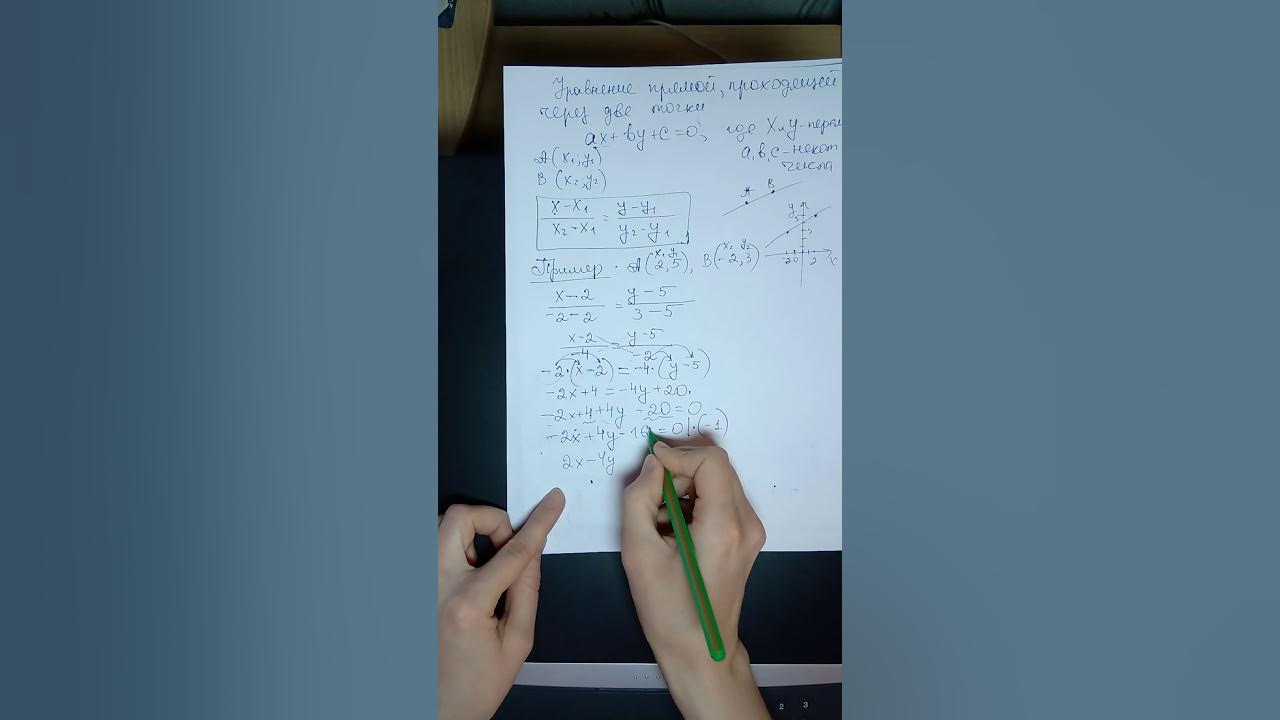 Уравнение прямой, проходящей
через две точки
ax + by + c = 0, где x и y - перем
a, b, c - некот
числа
A (x₁; y₁)
B (x₂; y₂)
A B
(x - x₁)/(x₂ - x₁) = (y - y₁)/(y₂ - y₁)
y 5 3 -2 0 2 x
x₁ y₁ x₂ y₂
Пример. A(2, 5), B(-2, 3)
(x - 2)/(-2 - 2) = (y - 5)/(3 - 5)
(x - 2)/(-4) = (y - 5)/(-2)
-2·(x - 2) = -4·(y - 5)
-2x + 4 = -4y + 20
-2x + 4 + 4y - 20 = 0
-2x + 4y - 16 = 0 |·(-1)
2x - 4y
2 3